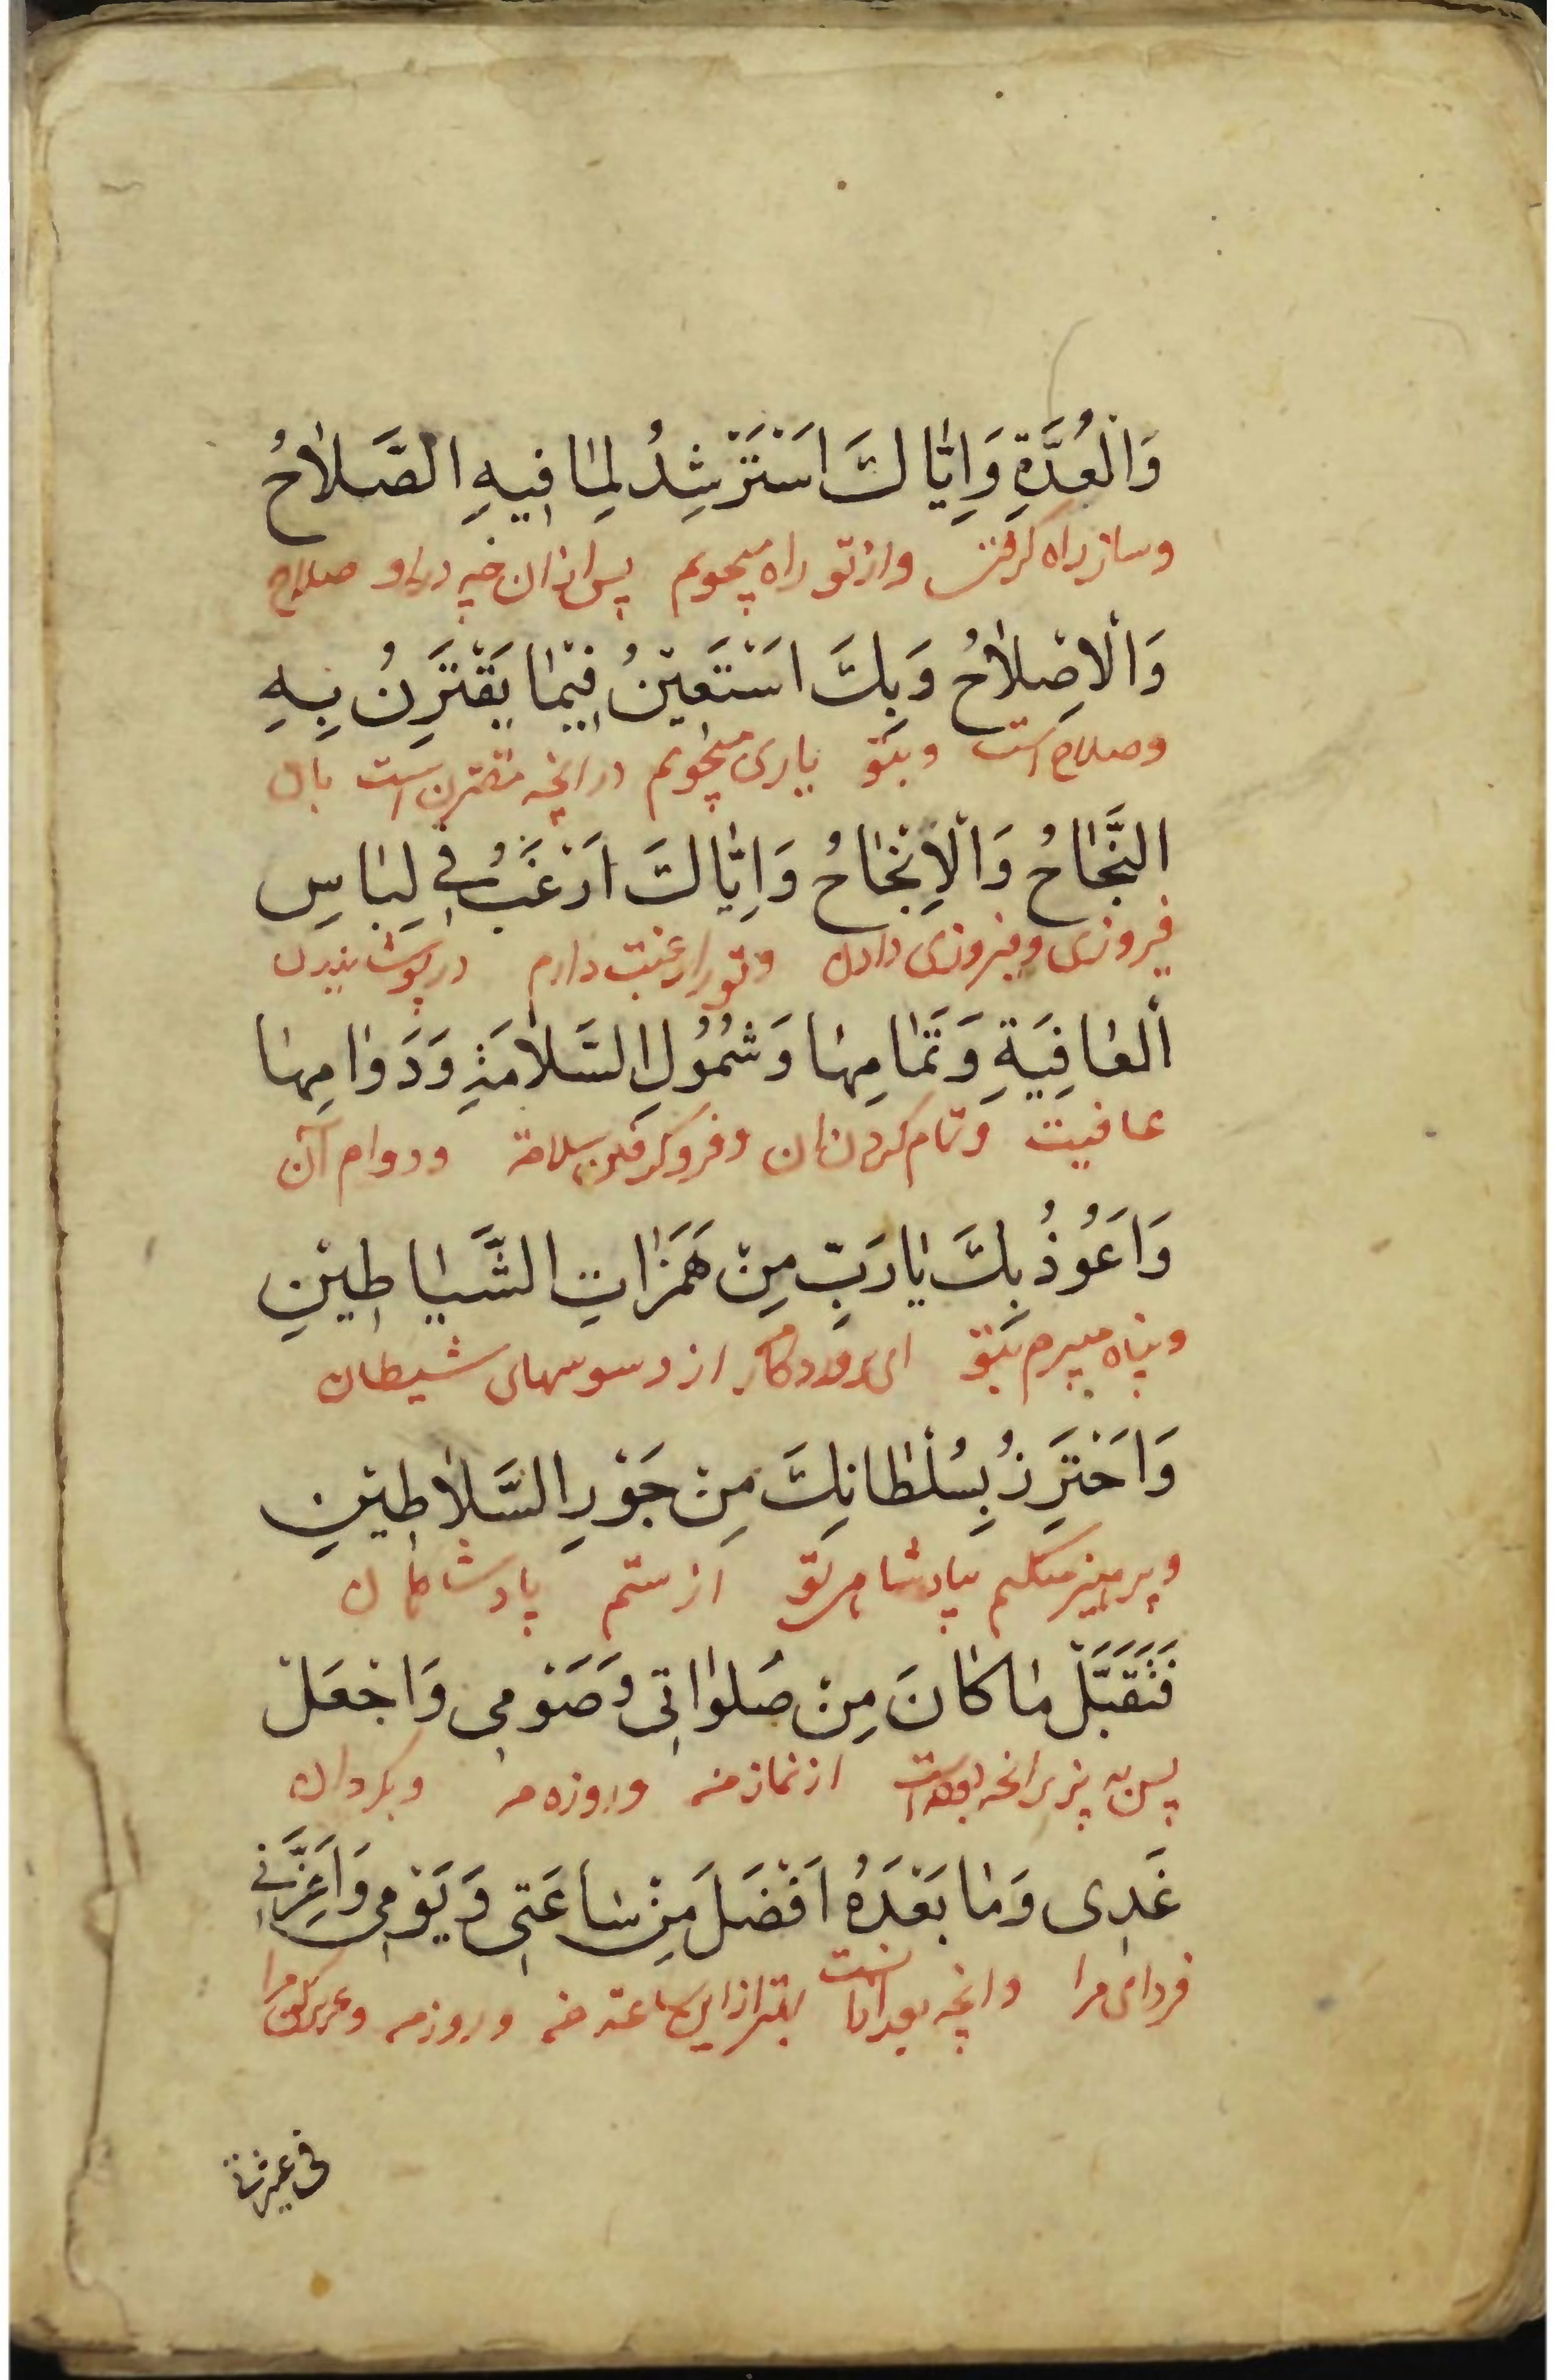 وَالْعُدَّةِ وَاِيّٰاكَ اَسْتَرْشِدُ لِمٰا فِيهِ الصَّلاٰحُ
وساز راه كرفتن وازتو راه میجویم پس ازان در او صلاح
وَالْاِصْلاٰحُ وَبِكَ اَسْتَعٖينُ فٖيمٰا يَقْتَرِنُ بِهِ
وصلاح است وبتو یاری میجویم درانچه مقترن است بان
النَّجٰاحُ وَالْاِنْجٰاحُ وَاِيّٰاكَ اَرْغَبُ فٖي لِبٰاسِ
فیروزی وفیروزی دادن وتورا رغبت دارم در پوشانیدن
الْعٰافِيَةِ وَتَمٰامِهٰا وَشُمُولِ السَّلاٰمَةِ وَدَوٰامِهٰا
عافیت وتمام کردن ان وفرو کرفتن سلامة ودوام آن
وَاَعُوذُ بِكَ يٰا رَبِّ مِنْ هَمَزٰاتِ الشَّيٰاطٖينِ
وپناه میبرم بتو ای پروردکار از وسوسهای شیطان
وَاَحْتَرِزُ بِسُلْطٰانِكَ مِنْ جَوْرِ السَّلاٰطٖينِ
وپرهیز میکنم بپادشاهی تو از ستم پادشاهان
فَتَقَبَّلْ مٰا كٰانَ مِنْ صَلَوٰاتٖي وَصَوْمٖي وَاجْعَلْ
پس به پذیر انچه بوده است از نماز من وروزه من وبکردان
غَدٖي وَمٰا بَعْدَهُ اَفْضَلَ مِنْ سٰاعَتٖي وَيَوْمٖي وَاَعِزَّنٖي
فردای مرا وانچه بعد ازانست بهتر ازاین ساعت من وروز من وعزیز کن مرا
فی عشیرتی